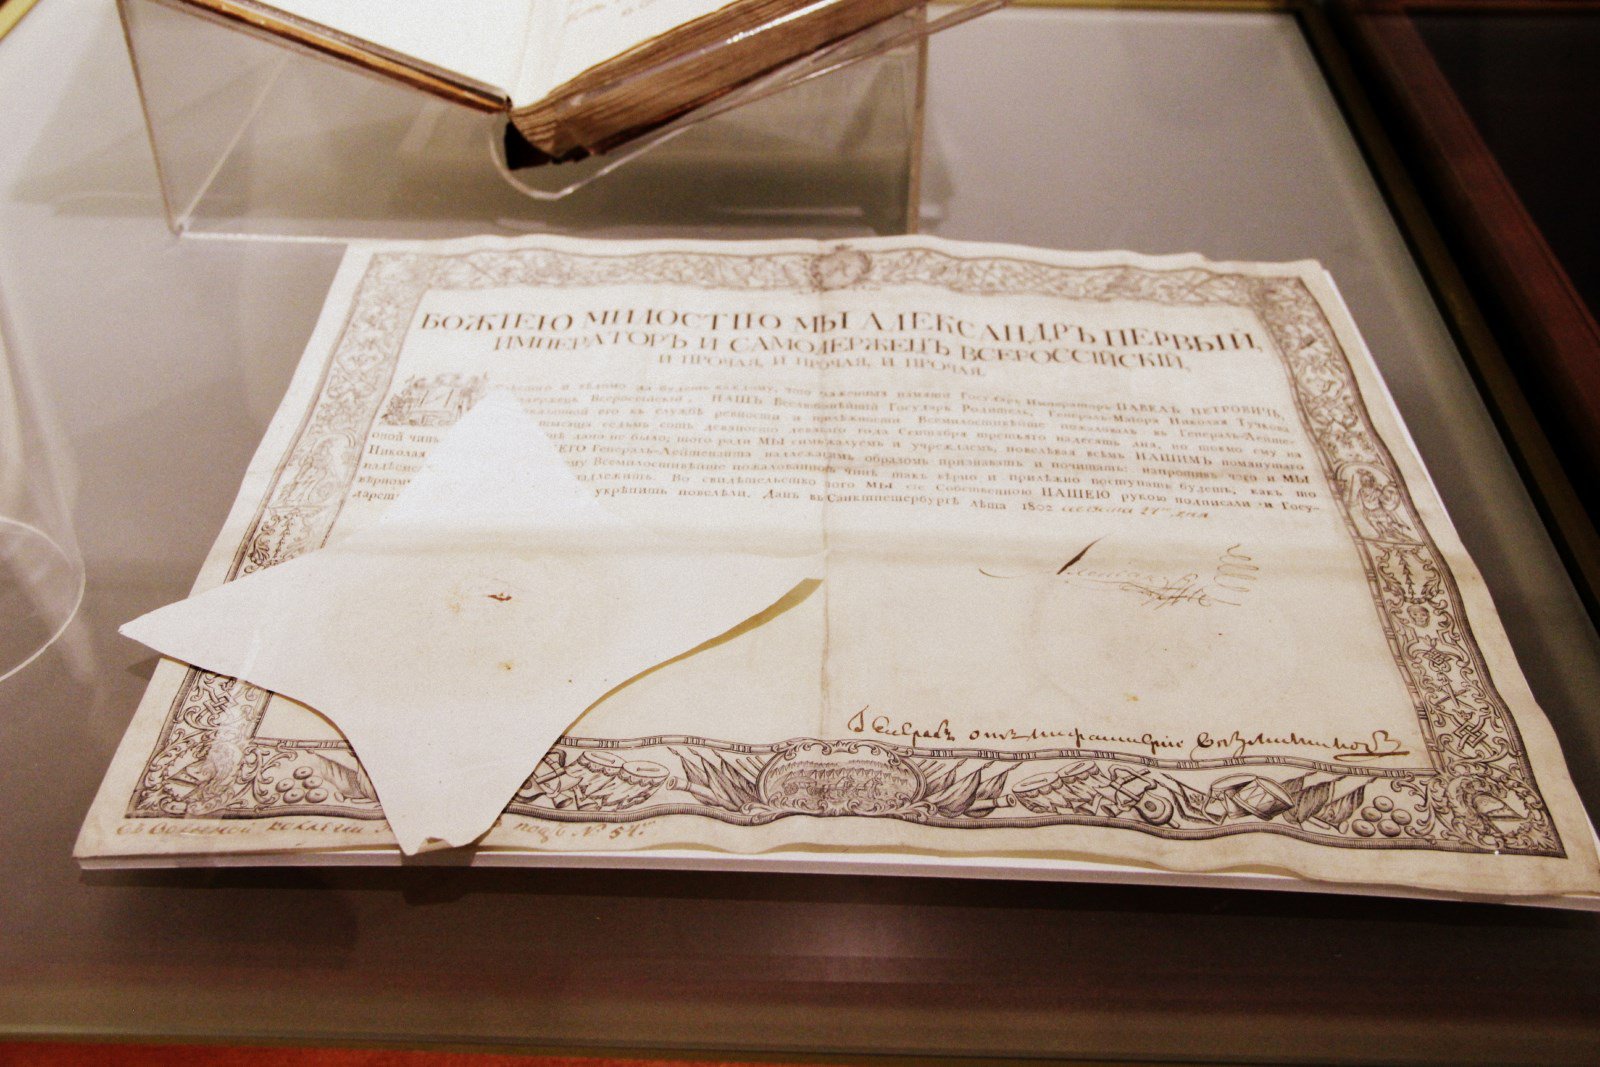 БОЖІЕЮ МИЛОСТІЮ МЫ АЛЕКСАНДРЪ ПЕРВЫЙ,
ИМПЕРАТОРЪ И САМОДЕРЖЕЦЪ ВСЕРОССІЙСКІЙ,
И ПРОЧАЯ, И ПРОЧАЯ, И ПРОЧАЯ.
и вѣдомо да будетъ каждому, что блаженныя памяти Государь Императоръ ПАВЕЛЪ ПЕТРОВИЧЪ,
Всероссійскій, НАШЪ Вселюбезнѣйшій Государь Родитель, Генералъ-Маіора Николая Тучкова
его къ службѣ ревности и прилѣжности Всемилостивѣйше пожаловалъ въ Генералъ-Лейте-
тысяща седьмъ сотъ девяносто девятаго года Сентября третьяго надесять дня, но
оной чинъ дано не было; того ради МЫ симъ жалуемъ и учреждаемъ, повелѣвая всѣмъ НАШИМЪ помянутаго
Николая Генералъ-Лейтенанта надлежащимъ образомъ признавать и почитать: напротивъ чего и МЫ
надѣемся Всемилостивѣйше пожалованномъ чинѣ такъ вѣрно и прилѣжно поступать будетъ, какъ то
вѣрному надлежитъ. Во свидѣтельство того МЫ сіе Собственною НАШЕЮ рукою подписали и Госу-
дарст укрѣпить повелѣли. Данъ въ Санктпетербургѣ лѣта 1802
Александръ
Генералъ отъ Инфантеріи Вязмитиновъ
въ Военной Коллегіи подъ № 54